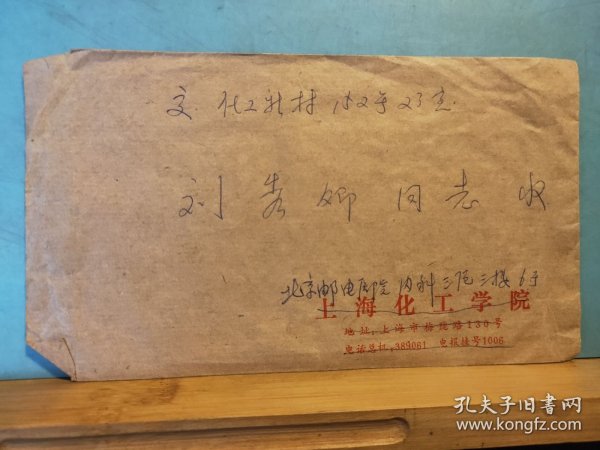 交 化工新村 152号 23室
刘秀卿 同志 收
北京邮电医院 内科三区三楼 6床
上海化工学院
地址:上海市梅陇路130号
电话总机:389061 电报挂号1006
孔夫子旧书网
www.kongfz.com